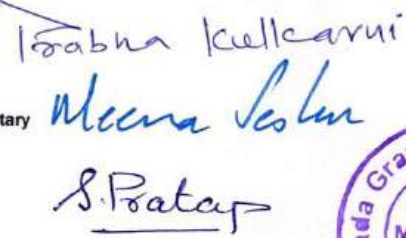 Prabha Kulkarni
tary Meena Seshu
S. Pratap
da Gra